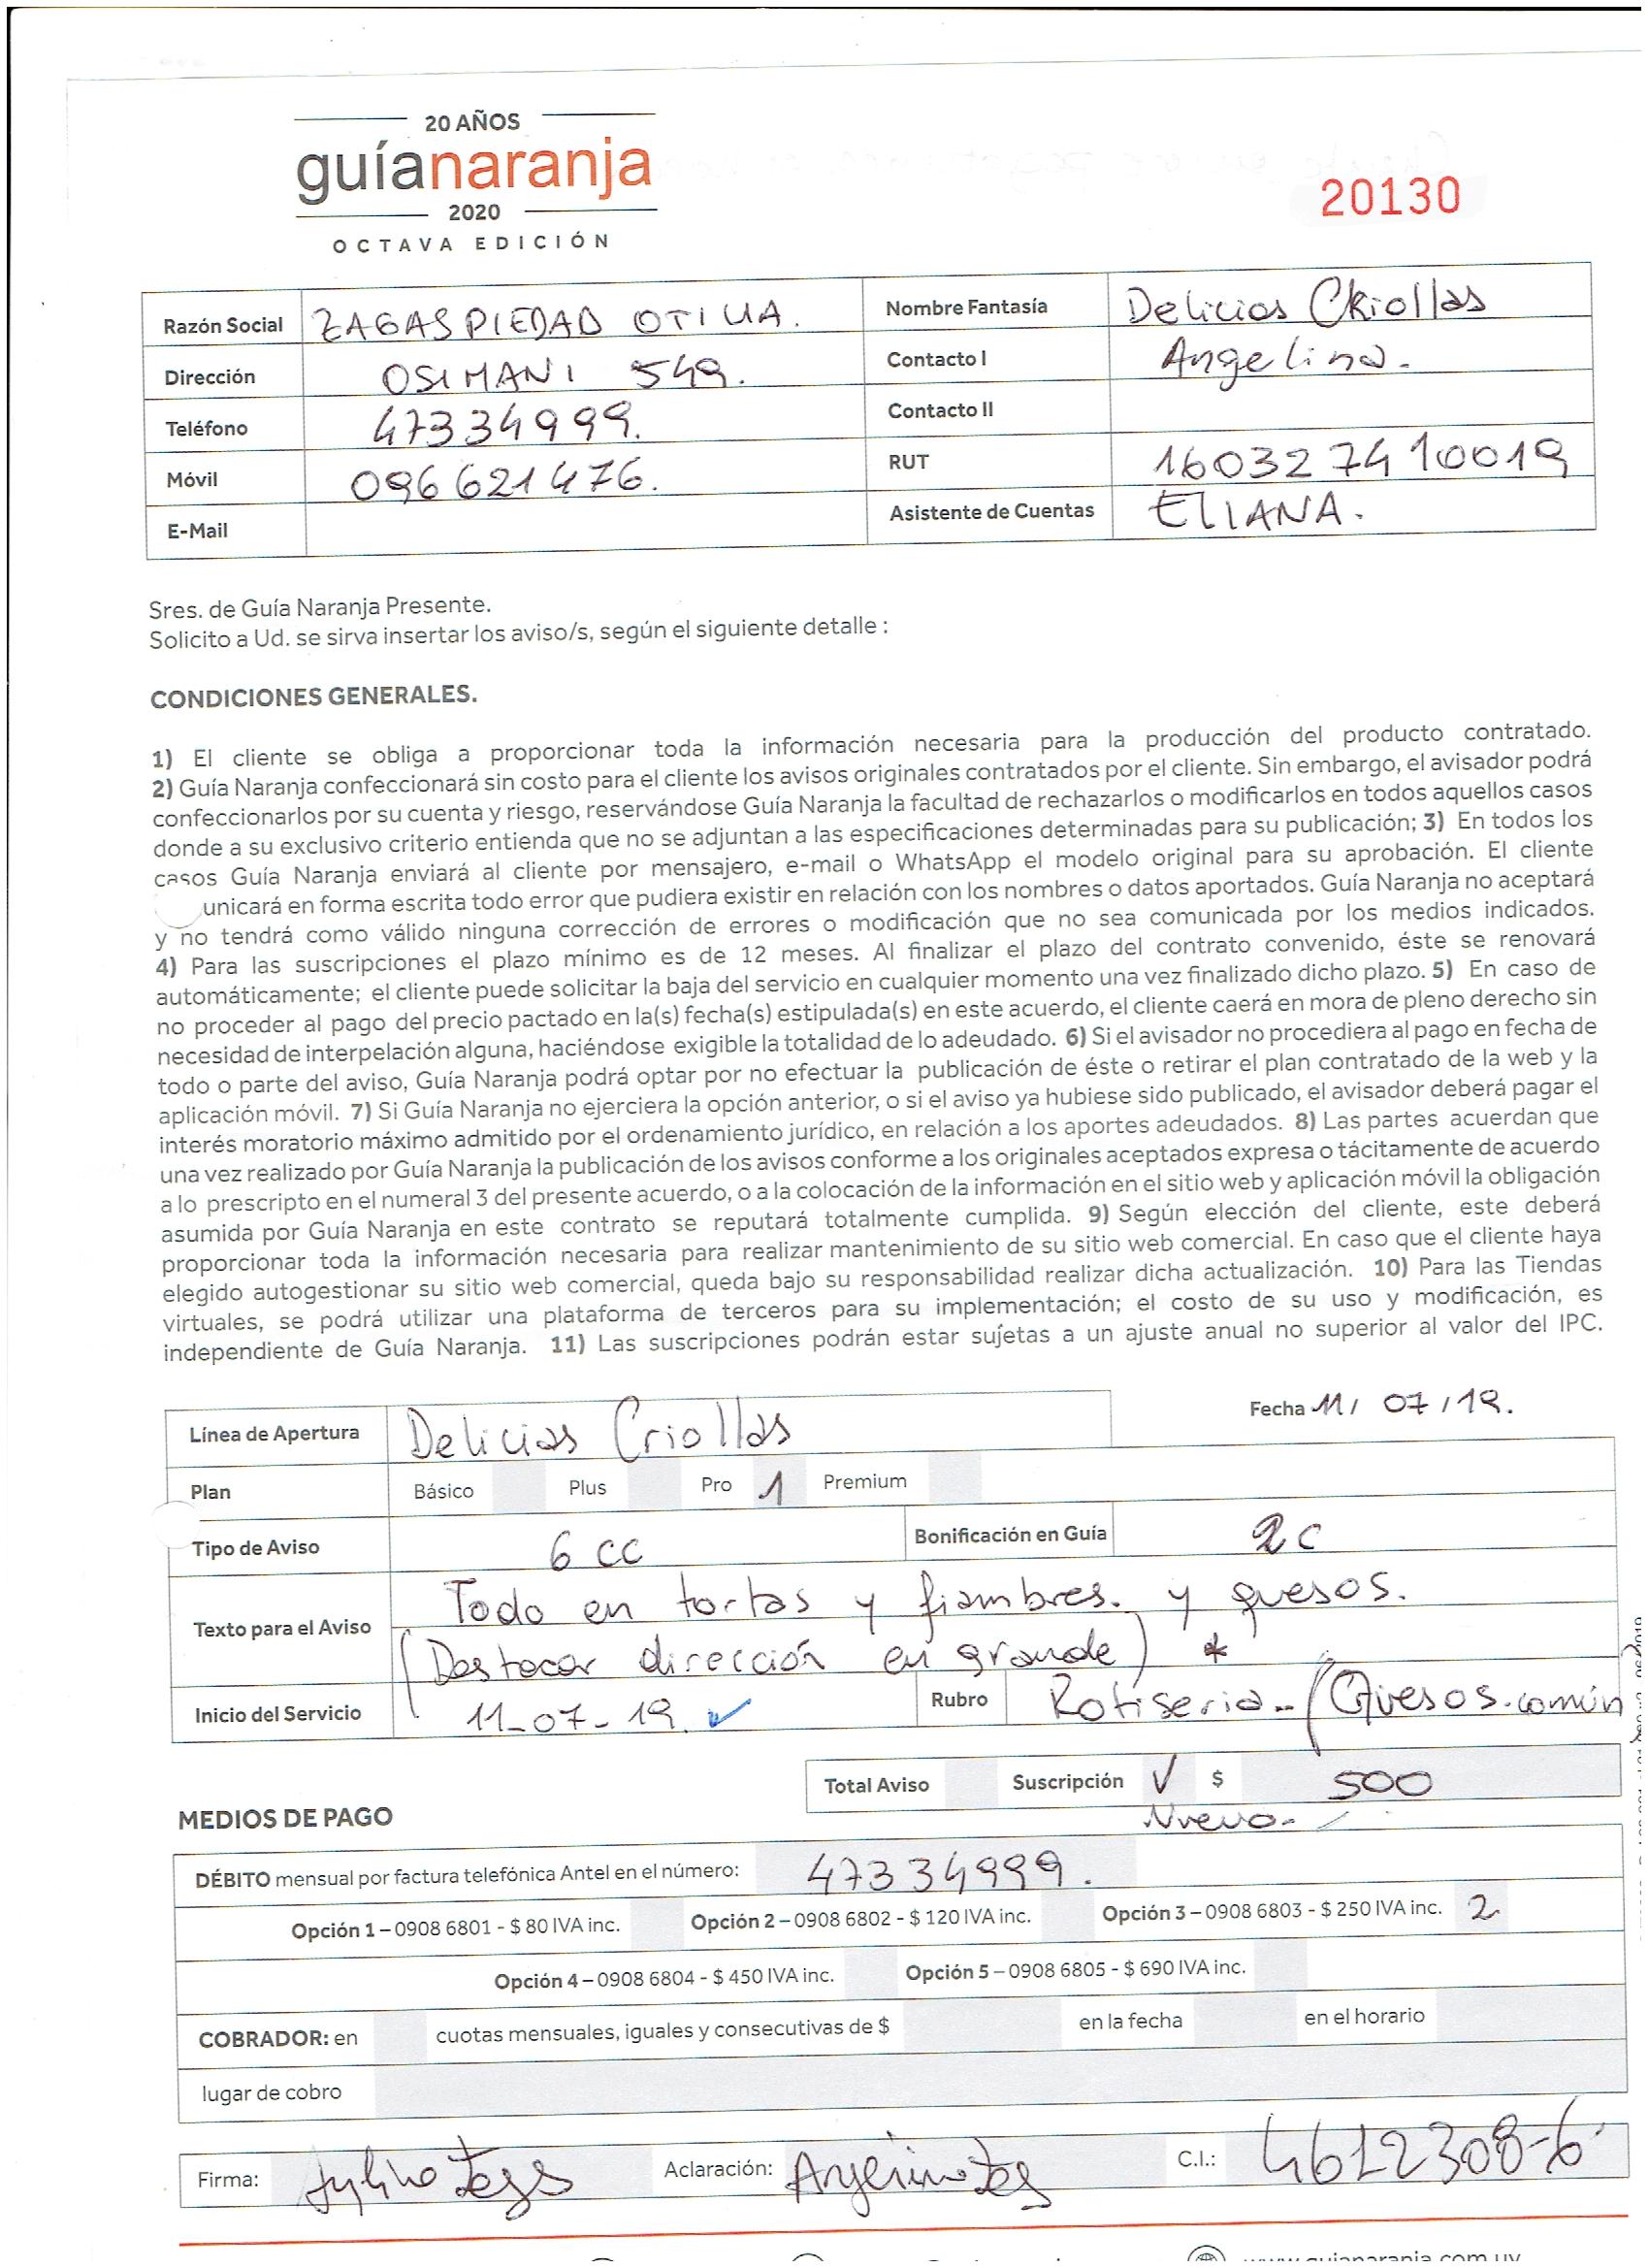 20 AÑOS
guíanaranja
2020
OCTAVA EDICIÓN
20130
Razón Social ZAGAS PIEDAD OTILIA. Nombre Fantasía Delicias Criollas
Dirección OSIMANI 549. Contacto I Angelina.
Teléfono 47334999. Contacto II
Móvil 096621476. RUT 160327410019
E-Mail Asistente de Cuentas ELIANA.
Sres. de Guía Naranja Presente.
Solicito a Ud. se sirva insertar los aviso/s, según el siguiente detalle :
CONDICIONES GENERALES.
1) El cliente se obliga a proporcionar toda la información necesaria para la producción del producto contratado.
2) Guía Naranja confeccionará sin costo para el cliente los avisos originales contratados por el cliente. Sin embargo, el avisador podrá
confeccionarlos por su cuenta y riesgo, reservándose Guía Naranja la facultad de rechazarlos o modificarlos en todos aquellos casos
donde a su exclusivo criterio entienda que no se adjuntan a las especificaciones determinadas para su publicación; 3) En todos los
casos Guía Naranja enviará al cliente por mensajero, e-mail o WhatsApp el modelo original para su aprobación. El cliente
unicará en forma escrita todo error que pudiera existir en relación con los nombres o datos aportados. Guía Naranja no aceptará
y no tendrá como válido ninguna corrección de errores o modificación que no sea comunicada por los medios indicados.
4) Para las suscripciones el plazo mínimo es de 12 meses. Al finalizar el plazo del contrato convenido, éste se renovará
automáticamente; el cliente puede solicitar la baja del servicio en cualquier momento una vez finalizado dicho plazo. 5) En caso de
no proceder al pago del precio pactado en la(s) fecha(s) estipulada(s) en este acuerdo, el cliente caerá en mora de pleno derecho sin
necesidad de interpelación alguna, haciéndose exigible la totalidad de lo adeudado. 6) Si el avisador no procediera al pago en fecha de
todo o parte del aviso, Guía Naranja podrá optar por no efectuar la publicación de éste o retirar el plan contratado de la web y la
aplicación móvil. 7) Si Guía Naranja no ejerciera la opción anterior, o si el aviso ya hubiese sido publicado, el avisador deberá pagar el
interés moratorio máximo admitido por el ordenamiento jurídico, en relación a los aportes adeudados. 8) Las partes acuerdan que
una vez realizado por Guía Naranja la publicación de los avisos conforme a los originales aceptados expresa o tácitamente de acuerdo
a lo prescripto en el numeral 3 del presente acuerdo, o a la colocación de la información en el sitio web y aplicación móvil la obligación
asumida por Guía Naranja en este contrato se reputará totalmente cumplida. 9) Según elección del cliente, este deberá
proporcionar toda la información necesaria para realizar mantenimiento de su sitio web comercial. En caso que el cliente haya
elegido autogestionar su sitio web comercial, queda bajo su responsabilidad realizar dicha actualización. 10) Para las Tiendas
virtuales, se podrá utilizar una plataforma de terceros para su implementación; el costo de su uso y modificación, es
independiente de Guía Naranja. 11) Las suscripciones podrán estar sujetas a un ajuste anual no superior al valor del IPC.
Línea de Apertura Delicias Criollas Fecha 11/ 07 / 19.
Plan Básico Plus Pro 1 Premium
Tipo de Aviso 6 CC Bonificación en Guía 2C
Texto para el Aviso Todo en tortas y fiambres. y quesos.
(Destacar dirección en grande) *
Inicio del Servicio 11-07-19. ✓ Rubro Rotiseria - (Quesos. común)
Total Aviso Suscripción ✓ $ 500
Nuevo.
MEDIOS DE PAGO
DÉBITO mensual por factura telefónica Antel en el número: 47334999.
Opción 1 – 0908 6801 - $ 80 IVA inc. Opción 2 – 0908 6802 - $ 120 IVA inc. Opción 3 – 0908 6803 - $ 250 IVA inc. 2
Opción 4 – 0908 6804 - $ 450 IVA inc. Opción 5 – 0908 6805 - $ 690 IVA inc.
COBRADOR: en cuotas mensuales, iguales y consecutivas de $ en la fecha en el horario
lugar de cobro
Firma: Aclaración: C.I.: 4612308-6
www.guianaranja.com.uy